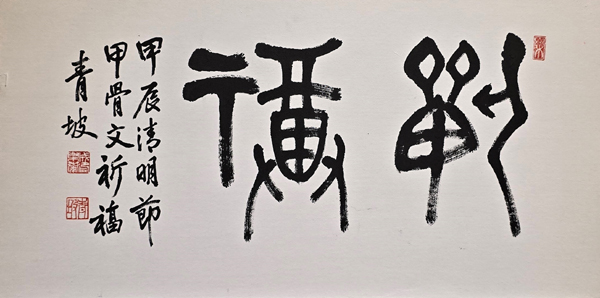 祈福
甲辰清明節
甲骨文祈福
青坡